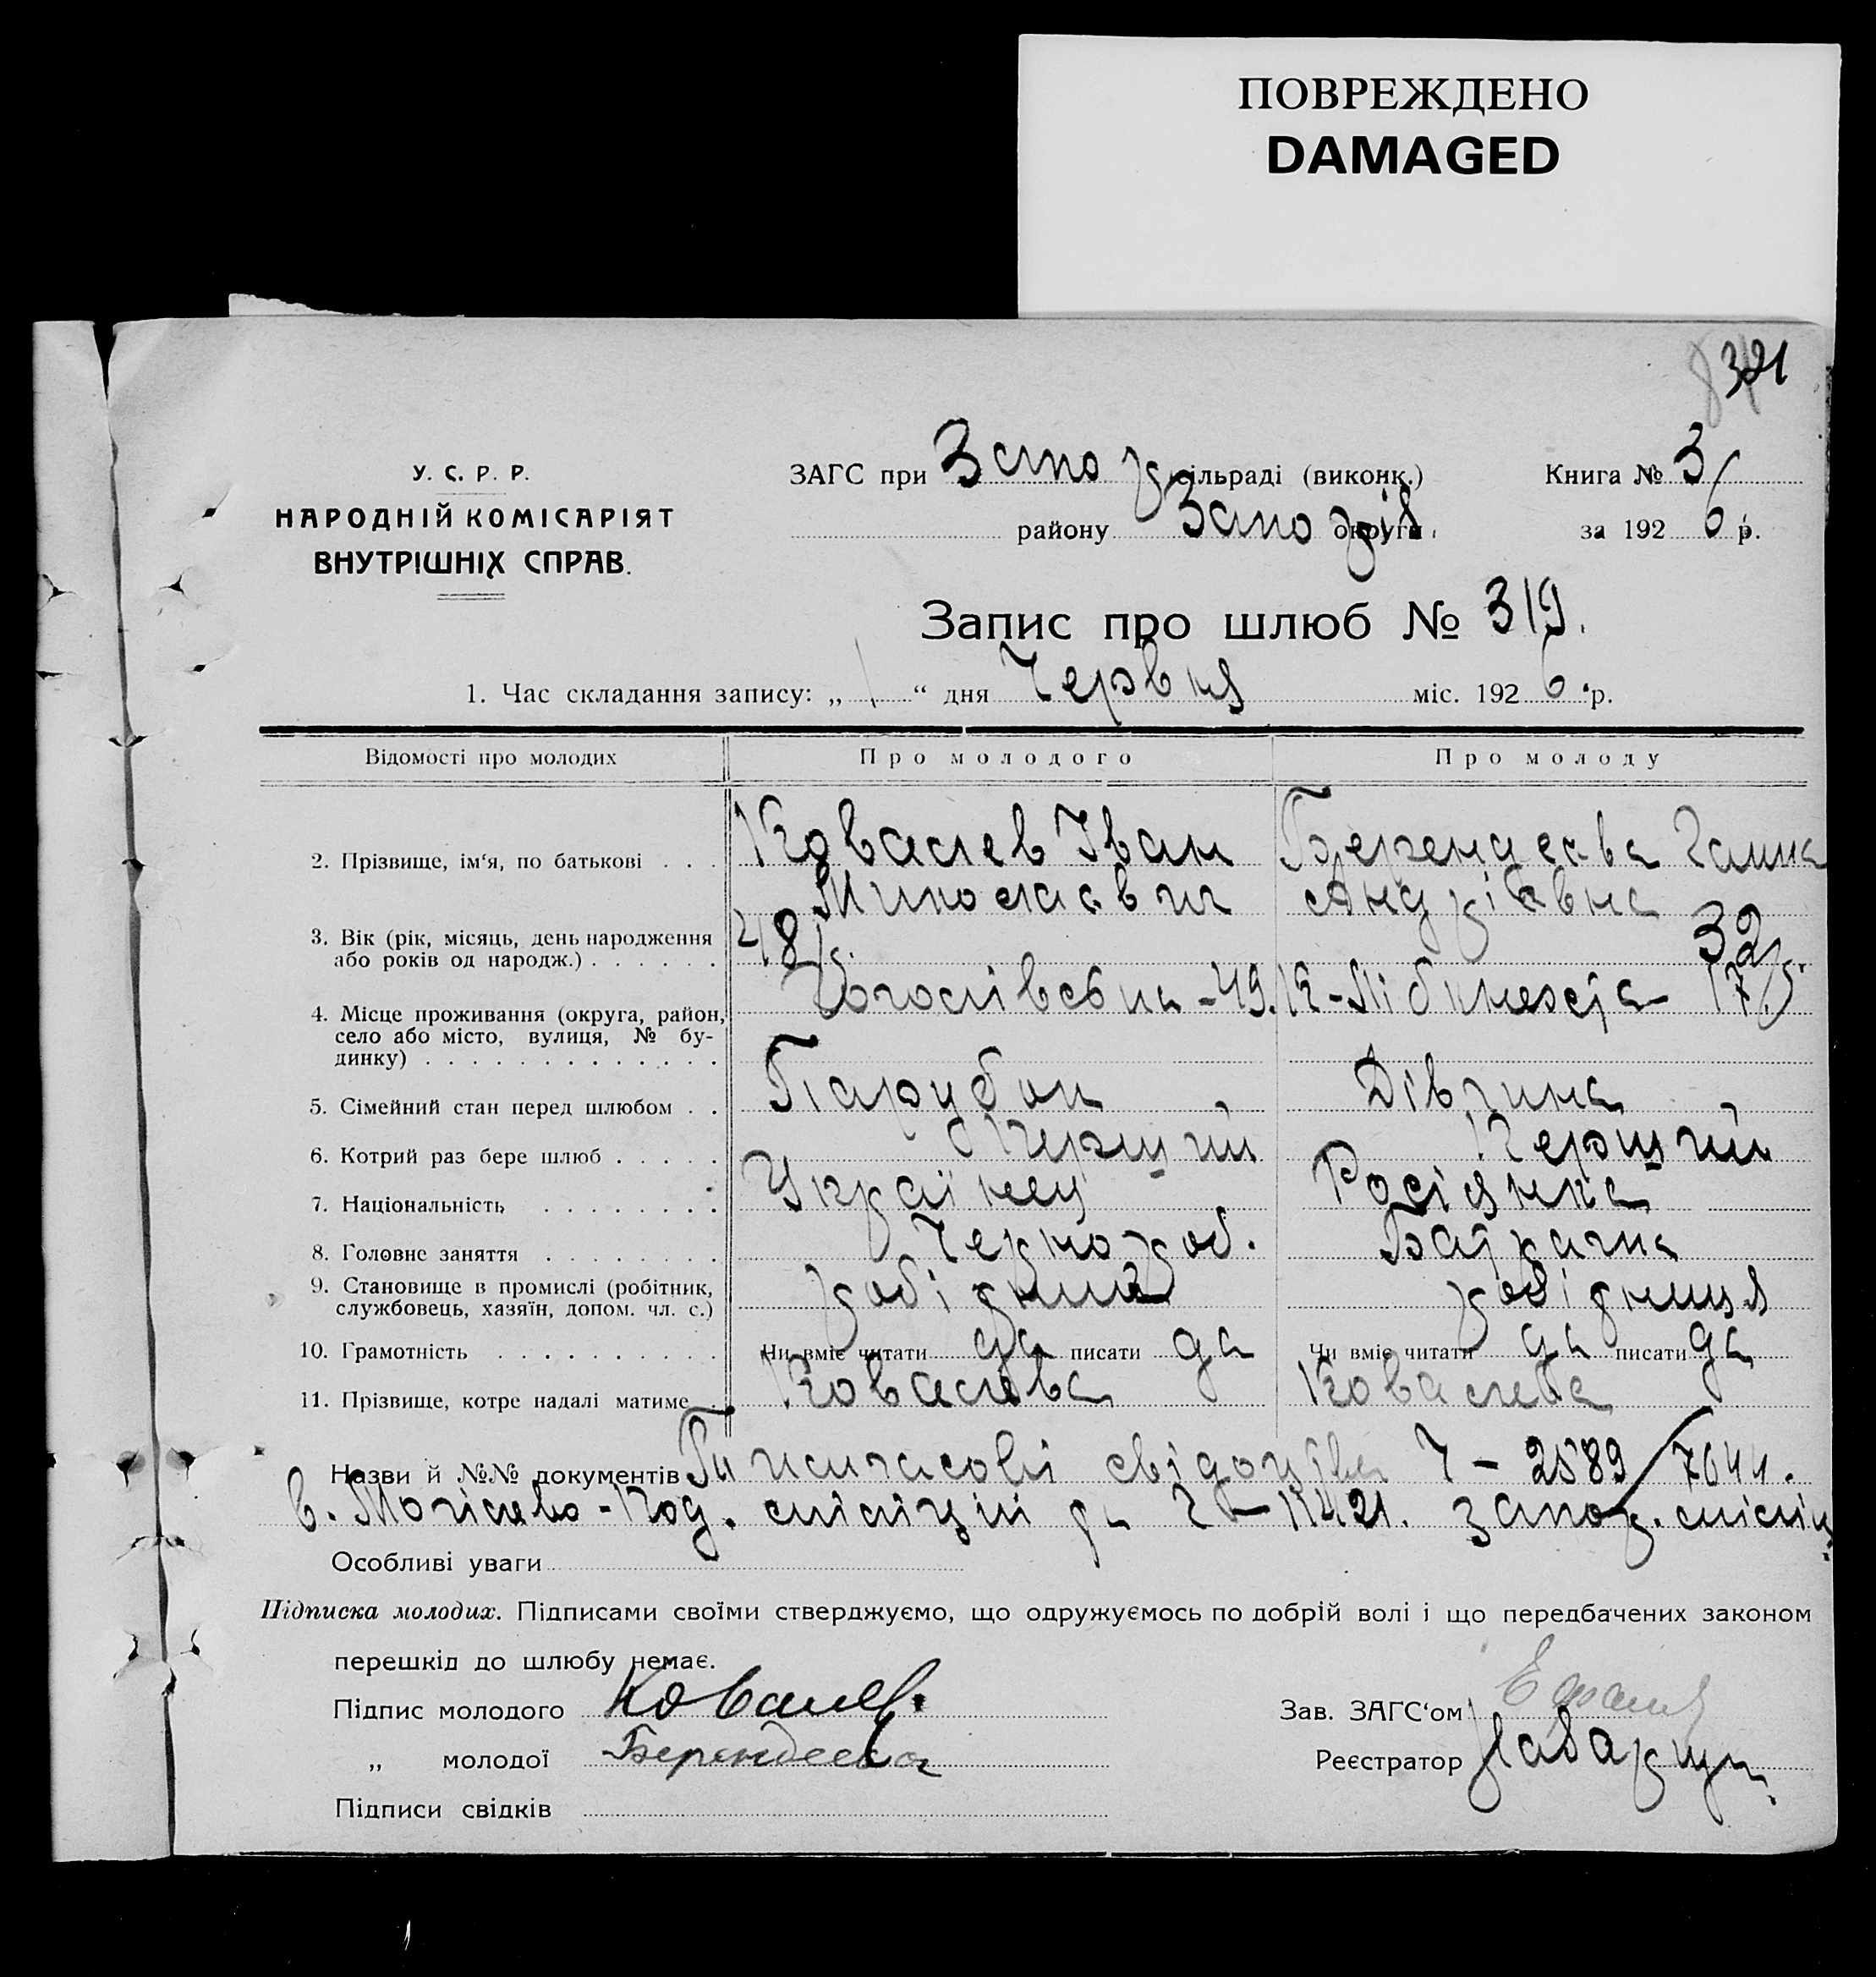 ПОВРЕЖДЕНО
DAMAGED
321
У. С. Р. Р.
НАРОДНІЙ КОМІСАРІЯТ
ВНУТРІШНІХ СПРАВ.
ЗАГС при Запор сільраді (виконк.) Книга № 3
району Запоріж округи за 1926 р.
Запис про шлюб № 319.
1. Час складання запису: „1“ дня Червня міс. 1926 р.
Відомості про молодих Про молодого Про молоду
2. Прізвище, ім‘я, по батькові . . . Ковалев Іван Берендеева Ганна
Андріівна
3. Вік (рік, місяць, день народження 32
або років од народж.) . . . . . .
4. Місце проживання (округа, район,
село або місто, вулиця, № бу-
динку) . . . . . . . . . . . . .
5. Сімейний стан перед шлюбом . . Парубок Дівчина
6. Котрий раз бере шлюб . . . . . Перший Перший
7. Національність . . . . . . . . Українец Росіянка
8. Головне заняття . . . . . . . . Чернороб.
9. Становище в промислі (робітник, робітник робітниця
службовець, хазяїн, допом. чл. с.)
10. Грамотність . . . . . . . . . . Чи вміє читати да писати да Чи вміє читати да писати да
11. Прізвище, котре надалі матиме . Ковалева Ковалева
Назви й №№ документів свідоцтва 7 – 2589/7644.
в. Могілево-Под. міліцій та
Особливі уваги
Підписка молодих. Підписами своїми стверджуємо, що одружуємось по добрій волі і що передбачених законом
перешкід до шлюбу немає.
Підпис молодого Ковалев.
„ молодої Берендеева
Зав. ЗАГС‘ом
Реєстратор
Підписи свідків